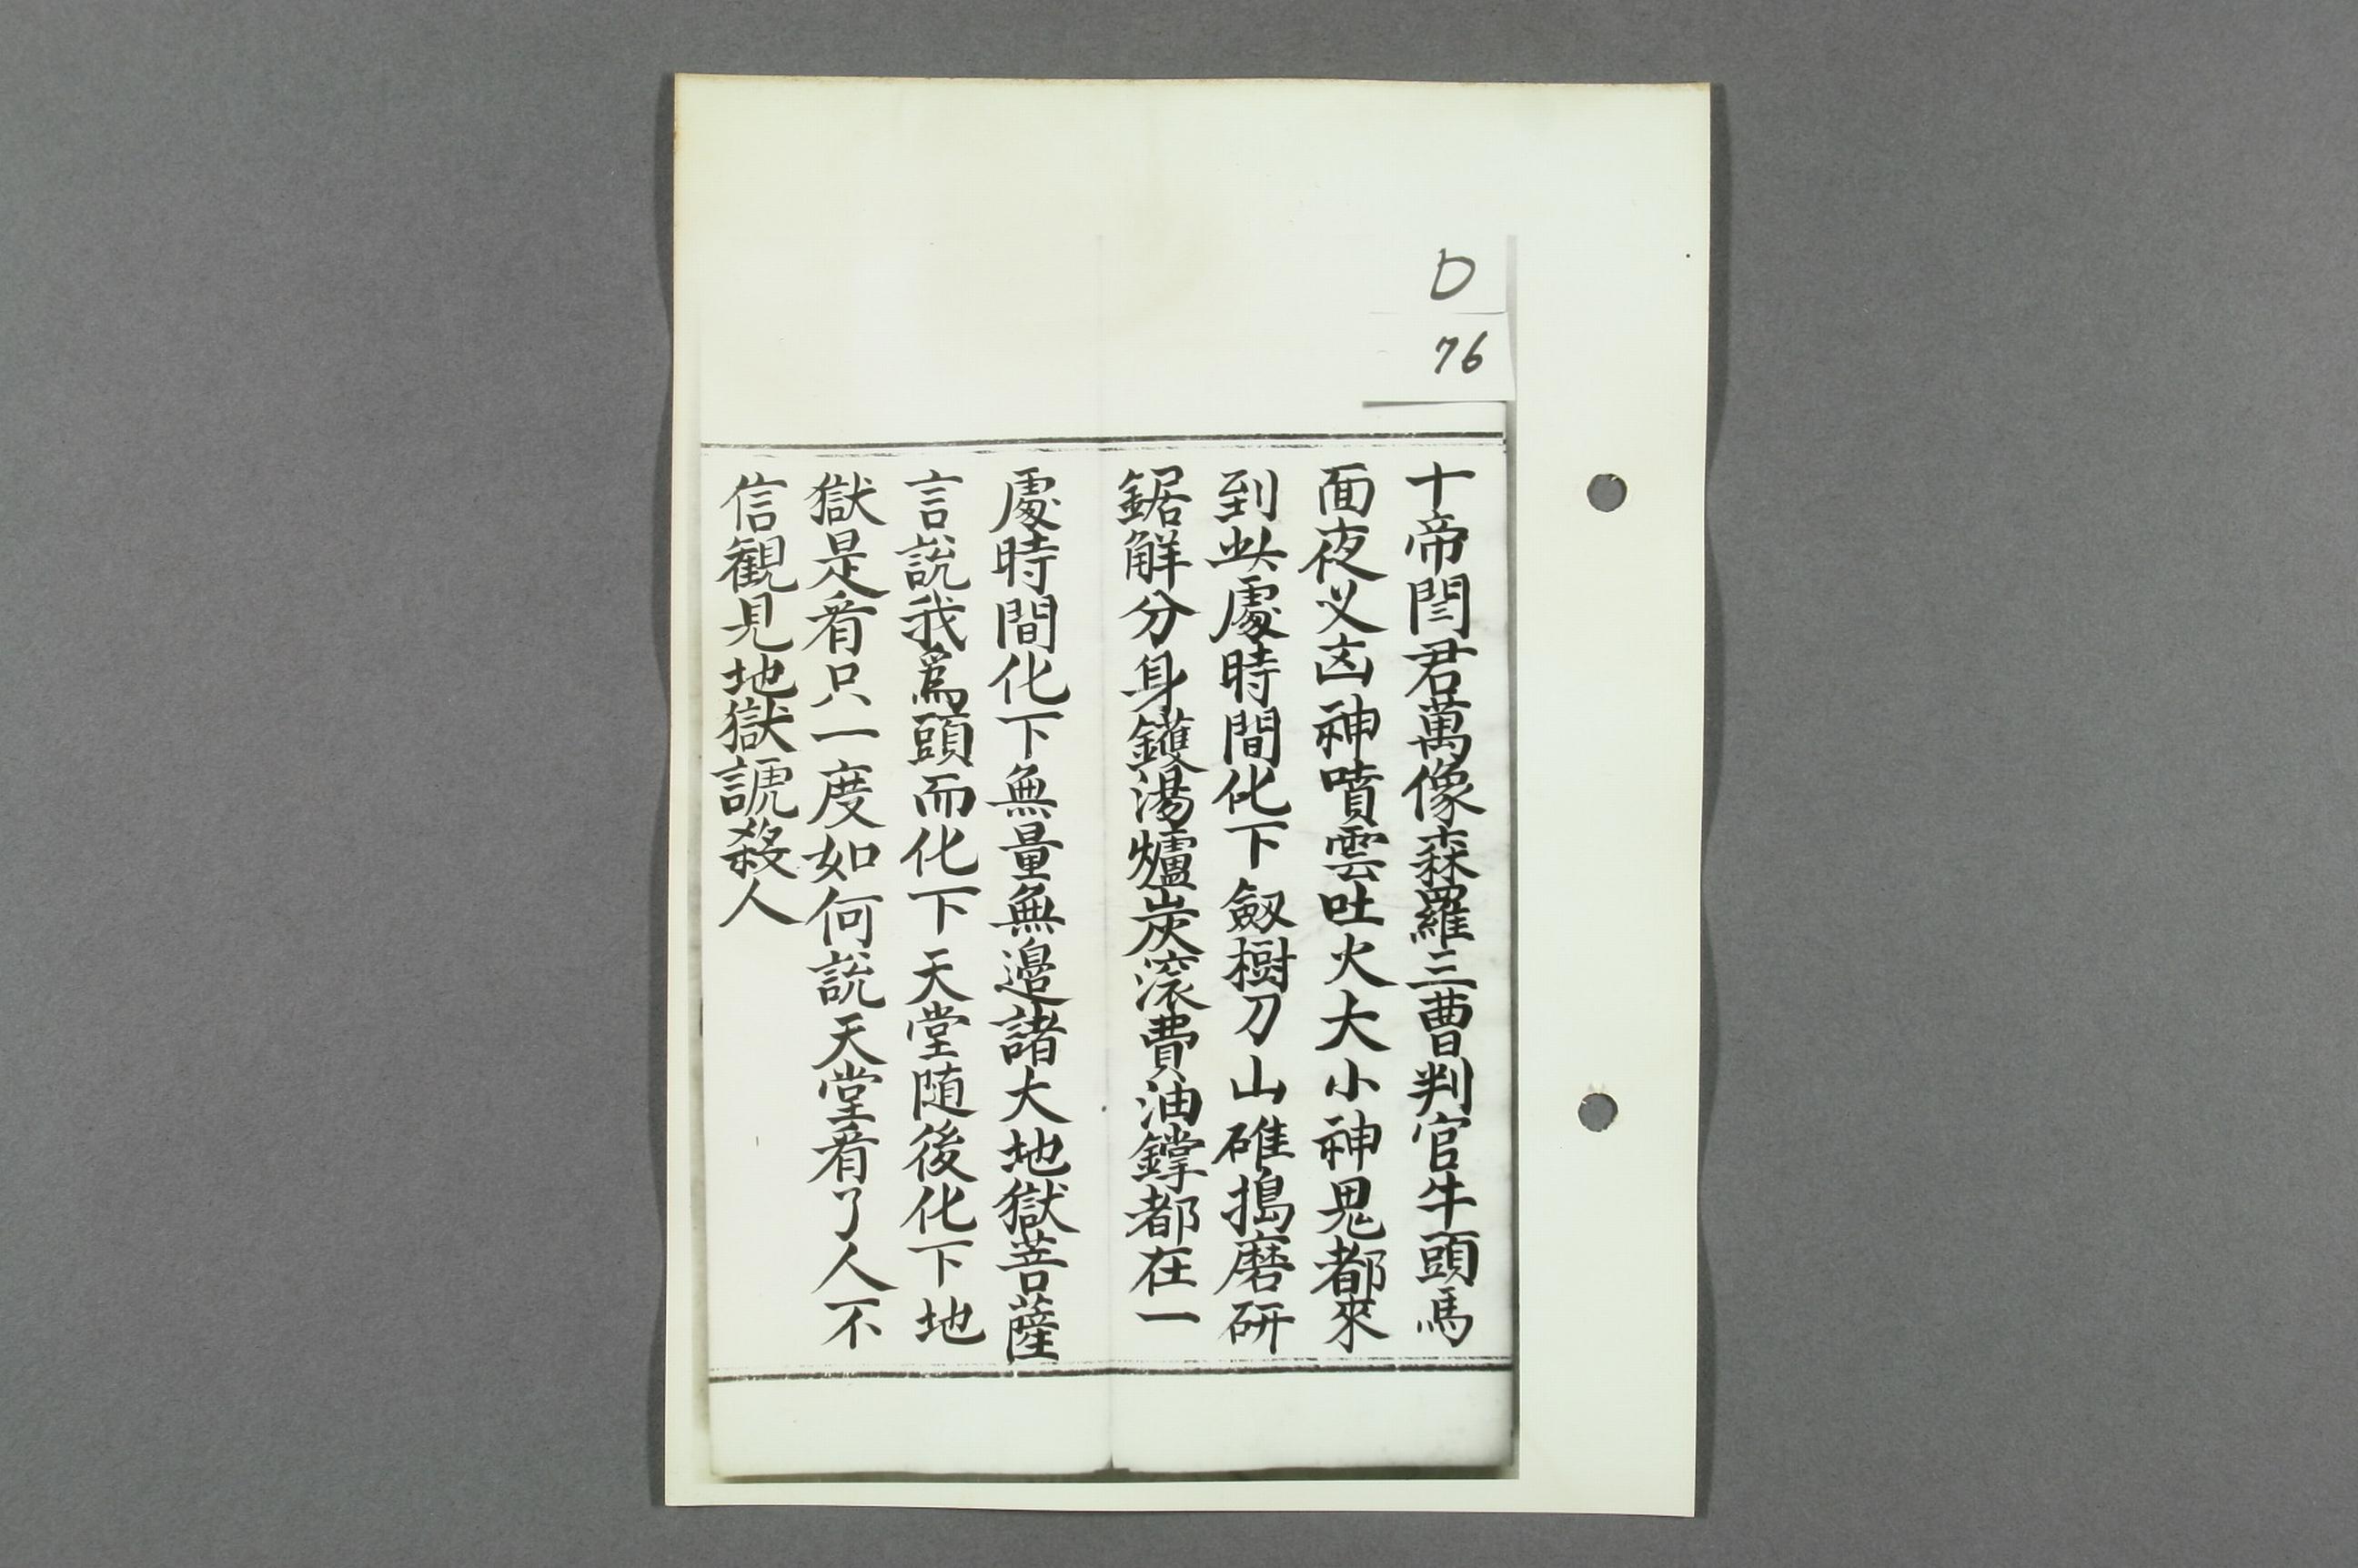 D
76
十帝閆君萬像森羅三曹判官牛頭馬
面夜义凶神噴雲吐火大小神鬼都來
到此處時間化下劔樹刀山碓搗磨研
鋸解分身鑊湯爐炭滚費油鐣都在一
處時間化下無量無邊諸大地獄菩薩
言說我爲頭而化下天堂随後化下地
獄是看只一度如何說天堂看了人不
信観見地獄諕殺人